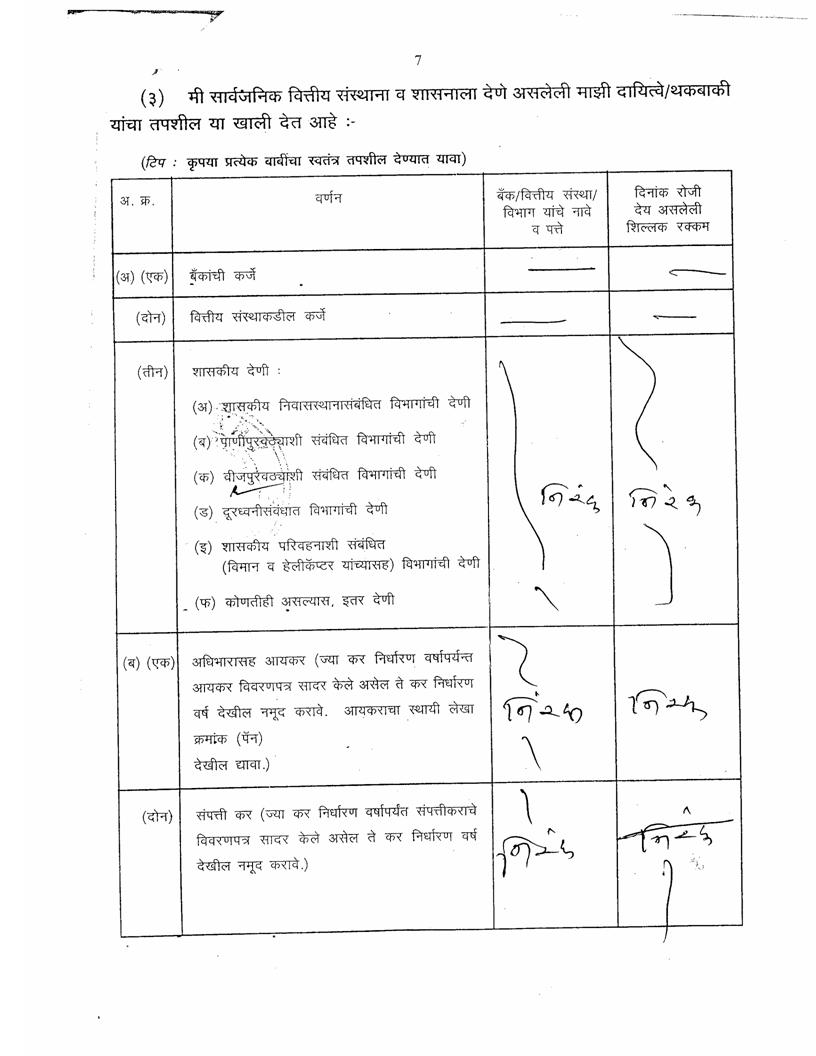 7
(३) मी सार्वजनिक वित्तीय संस्थाना व शासनाला देणे असलेली माझी दायित्वे/थकबाकी
यांचा तपशील या खाली देत आहे :-
(टिप : कृपया प्रत्येक बाबींचा स्वतंत्र तपशील देण्यात यावा)
अ. क्र.
वर्णन
बँक/वित्तीय संस्था/
विभाग यांचे नावे
व पत्ते
दिनांक रोजी
देय असलेली
शिल्लक रक्कम
(अ) (एक) बँकांची कर्जे
(दोन) वित्तीय संस्थाकडील कर्जे
(तीन) शासकीय देणी :
(अ) शासकीय निवासस्थानासंबंधित विभागांची देणी
(ब) पाणीपुरवठ्याशी संबंधित विभागांची देणी
(क) वीजपुरवठ्याशी संबंधित विभागांची देणी
निरंक निरंक
(ड) दूरध्वनीसंबंधात विभागांची देणी
(इ) शासकीय परिवहनाशी संबंधित
(विमान व हेलीकॅप्टर यांच्यासह) विभागांची देणी
(फ) कोणतीही असल्यास, इतर देणी
(ब) (एक) अधिभारासह आयकर (ज्या कर निर्धारण वर्षापर्यन्त
आयकर विवरणपत्र सादर केले असेल ते कर निर्धारण
वर्ष देखील नमूद करावे. आयकराचा स्थायी लेखा
क्रमांक (पॅन)
देखील द्यावा.)
निरंक निरंक
(दोन) संपत्ती कर (ज्या कर निर्धारण वर्षापर्यंत संपत्तीकराचे
विवरणपत्र सादर केले असेल ते कर निर्धारण वर्ष
देखील नमूद करावे.)
निरंक निरंक